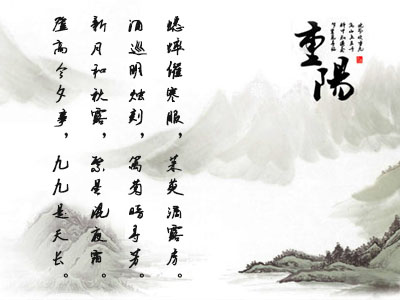 重陽
蟋蟀催寒服，茱萸滴露房。
酒巡明烛刻，篱菊暗寻芳。
新月和秋露，繁星混夜霜。
登高今夕事，九九是天长。